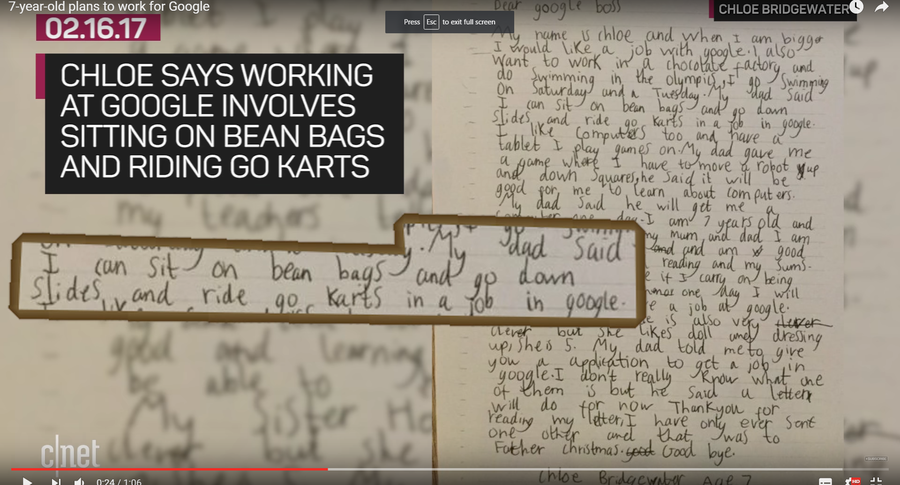 7-year-old plans to work for Google
Press Esc to exit full screen
CHLOE BRIDGEWATER
02.16.17
CHLOE SAYS WORKING
AT GOOGLE INVOLVES
SITTING ON BEAN BAGS
AND RIDING GO KARTS
my teachers
My dad said
I can sit on bean bags and go down
slides and ride go karts in a job in google.
good and learning
be able to
My sister
clever but she
Dear google boss
My name is chloe and when I am bigger
I would like a job with google. I also
want to work in a chocolate factory and
do swimming in the olympics. I go swimming
on Saturday and a Tuesday. My dad said
I can sit on bean bags and go down
slides and ride go karts in a job in google.
I like computers too and have a
tablet I play games on. My dad gave me
a game where I have to move a robot up
and down squares, he said it will be
good for me to learn about computers.
My dad said he will get me a
computer one day. I am 7 years old and
my mum and dad I am
and am good
reading and my sums.
if I carry on being
one day I will
e a job at google.
e is also very clever
clever but she likes doll and dressing
up, she is 5. My dad told me to give
you a application to get a job in
google. I don't really know what one
of them is but he said a letter
will do for now Thankyou for
reading my letter, I have only ever sent
one other and that was to
Father christmas. good Good bye.
Chloe Bridgewater Age 7
c|net
0:24 / 1:06
HD